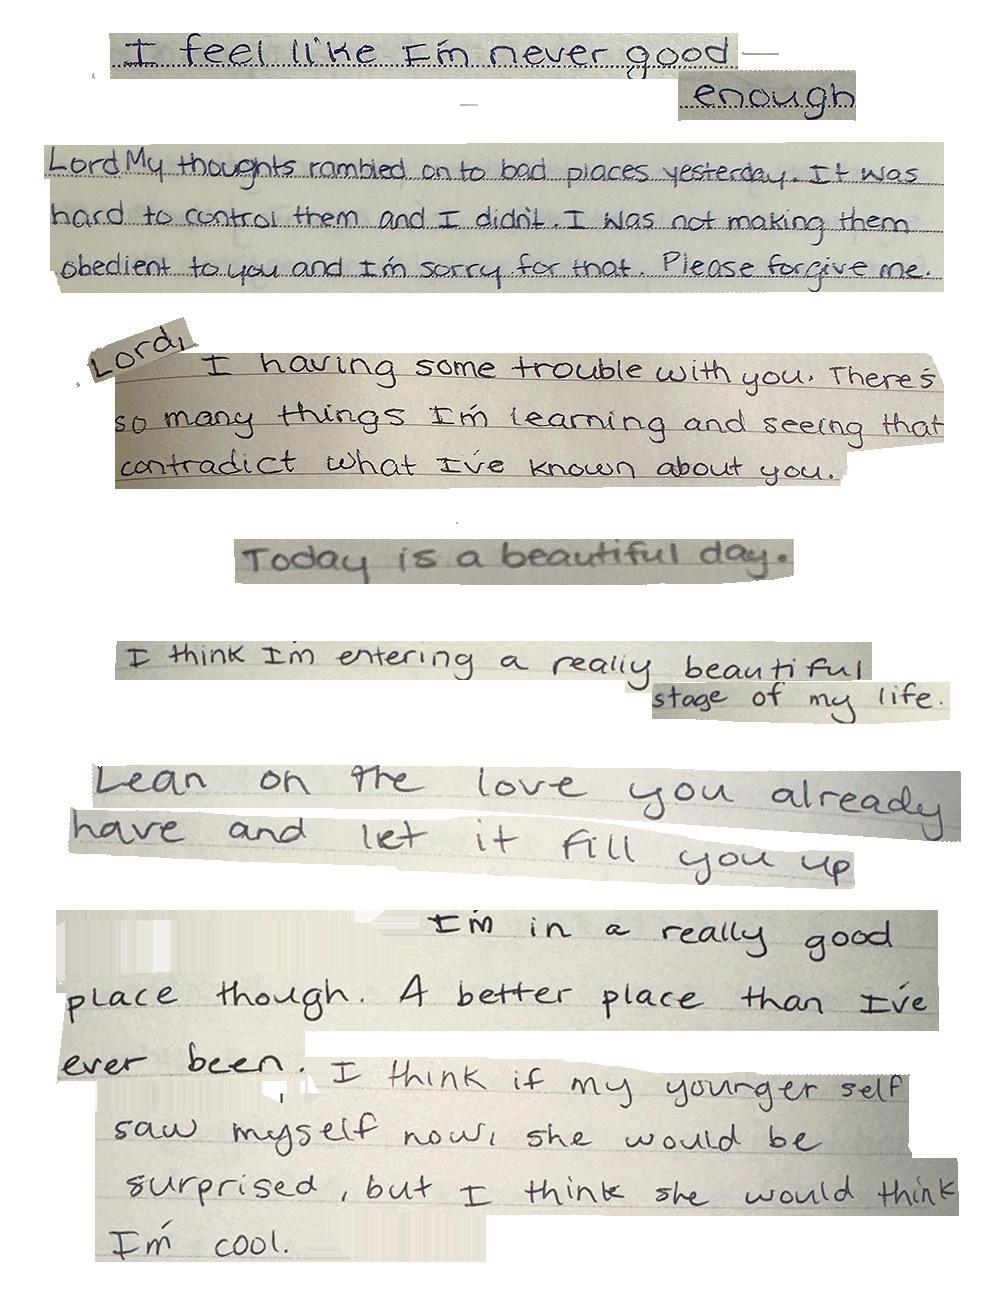 I feel like I'm never good
enough
Lord My thoughts rambled on to bad places yesterday. It was
hard to control them and I didn't. I was not making them
obedient to you and I'm sorry for that. Please forgive me.
Lord, I having some trouble with you. There's
so many things I'm learning and seeing that
contradict what I've known about you.
Today is a beautiful day.
I think I'm entering a really beautiful
stage of my life.
Lean on the love you already
have and let it fill you up
I'm in a really good
place though. A better place than I've
ever been. I think if my younger self
saw myself now, she would be
surprised, but I think she would think
I'm cool.